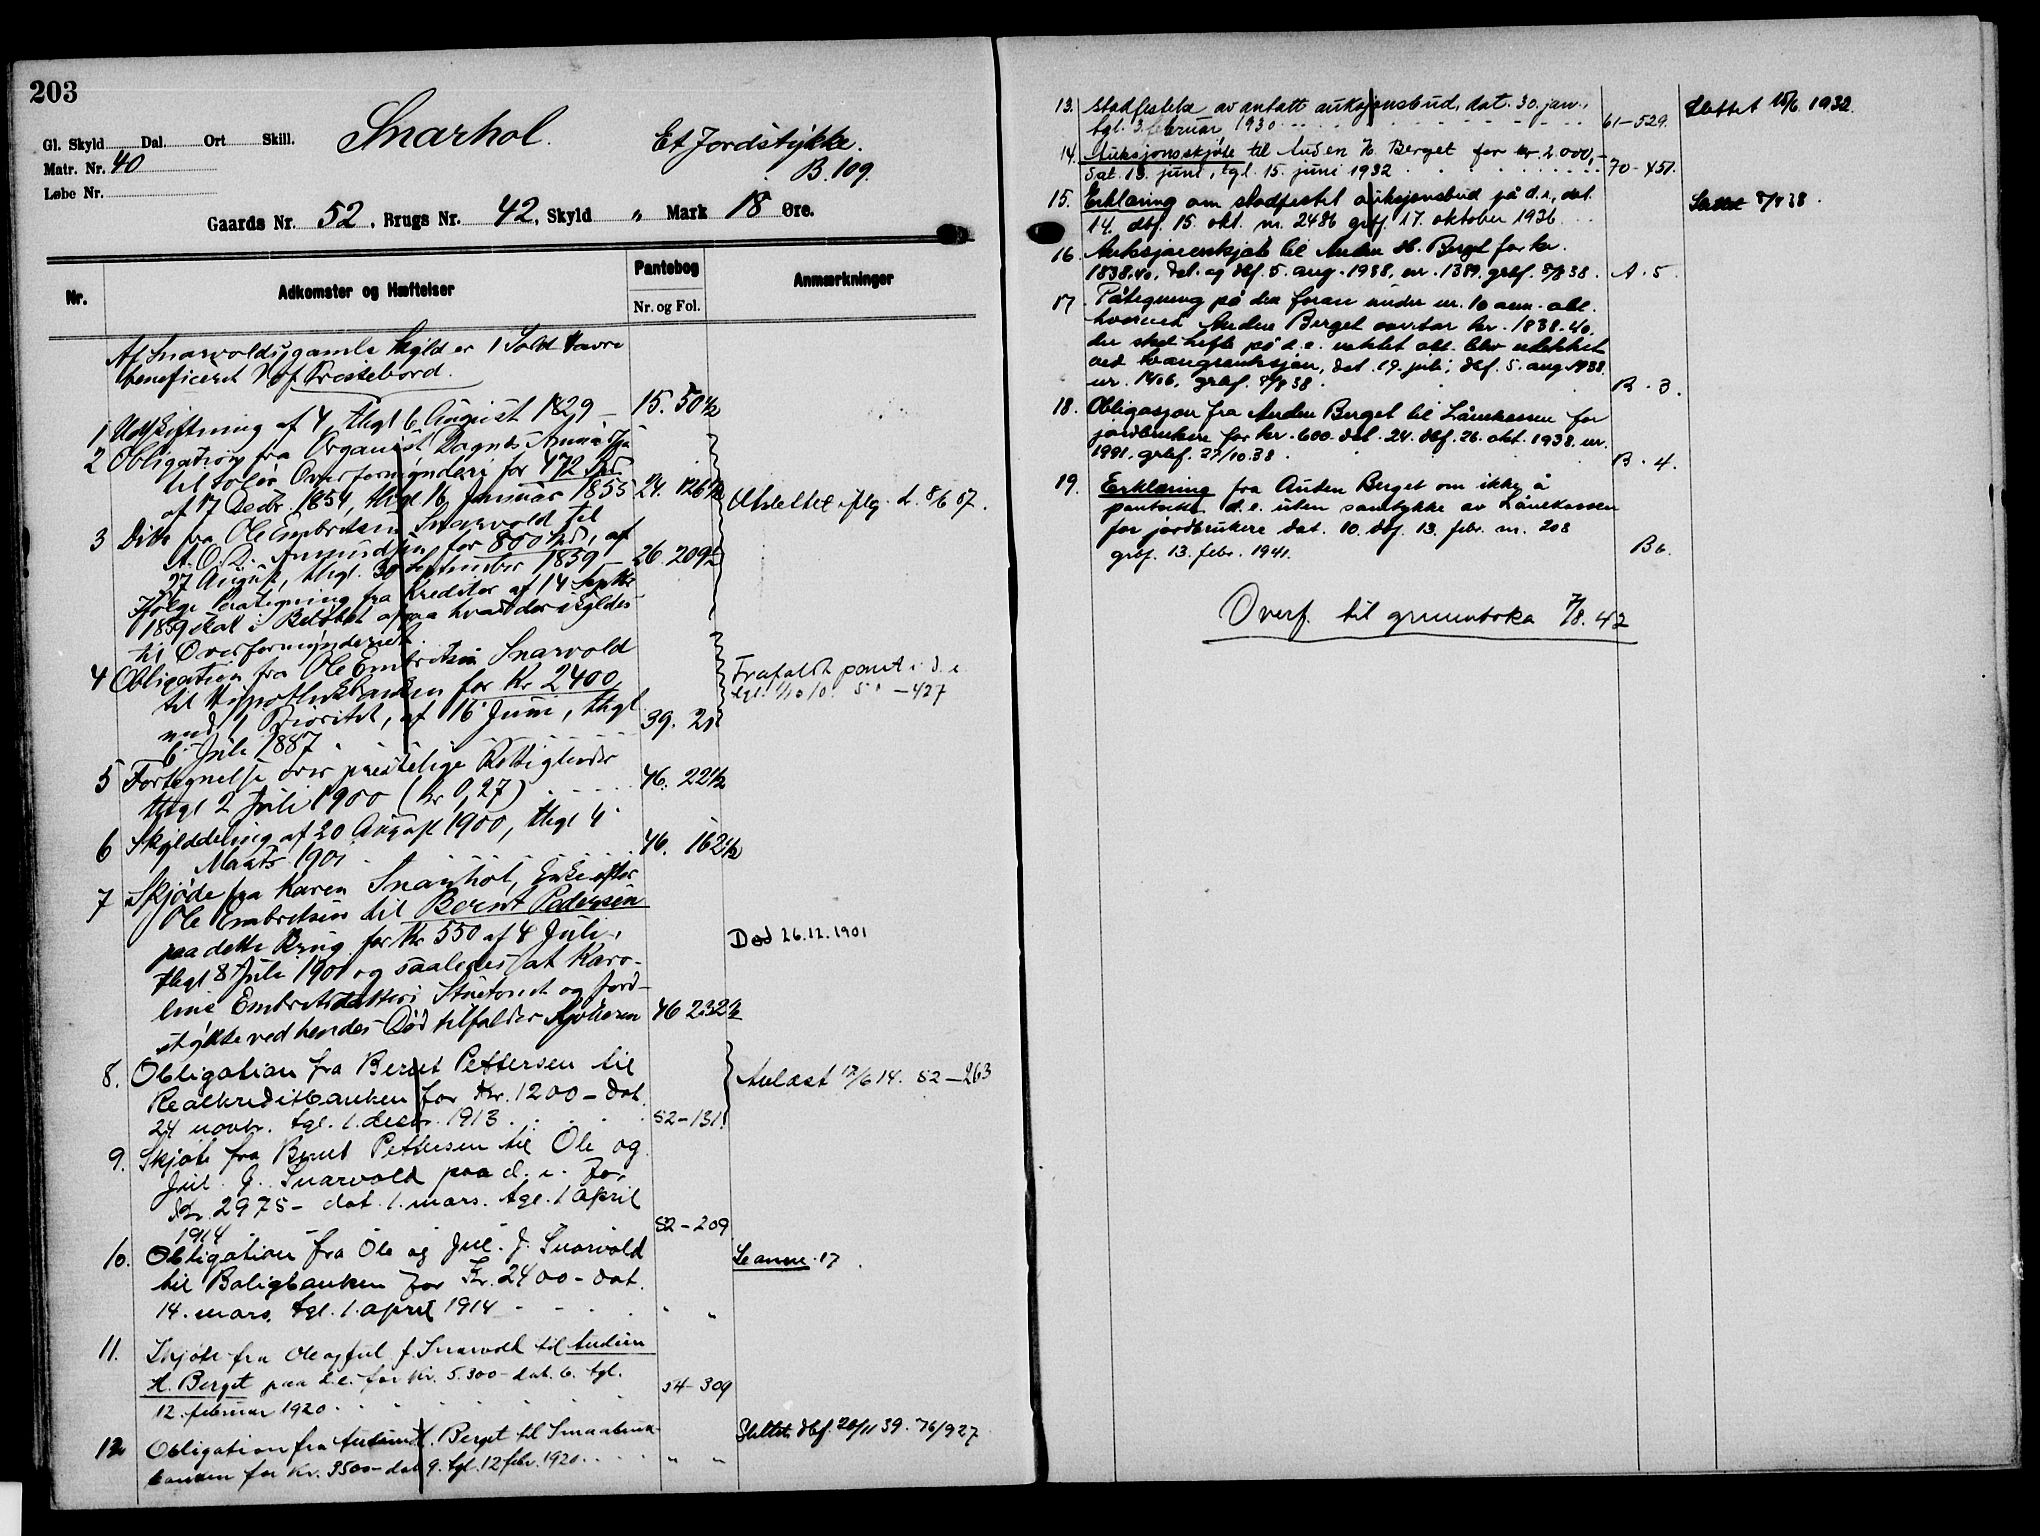 203
Gl. Skyld Dal. Ort Skill.
Matr. Nr. 40
Løbe Nr.
Snarhol.
Et Jordstykke.
B. 109.
Gaards Nr. 52, Brugs Nr. 42, Skyld " Mark 18 Øre.
Nr.
Adkomster og Hæftelser
Pantebog
Nr. og Fol.
Anmærkninger
Af Snarvolds gamle Skyld er 1 Sold Havre
beneficeret
1 Udskiftning af 4, thgl 6 August 1829 – 15. 50½
2 Obligation fra Organist
til Solør Overformynderi for 472 Spd
af 17 Decbr. 1854, thgl 16 Januar 1855 24. 126½
Udslettet iflg. d. 8/6 07.
3 Ditto fra Ole Embretsen Snarvold til
A. O. R. Amundsen for 800 Spd, af
27 August, thgl. 30 September 1859 – 26. 209½
Ifølge Paategning fra Kreditor af 14 Septbr
1859 skal i Beløbet afgaa hvad der skyldes
til Overformynderiet.
4 Obligation fra Ole Embretsen Snarvold
til Hypothekbanken for Kr 2400,
med 1 Prioritet, af 16 Juni, thgl
6 Juli 1887. 39. 21
Frafaldt pant i d. e.
5 Fortegnelse over prestelige Rettigheder
thgl 2 Juli 1900 (kr 0,27) 46. 22½
6 Skylddeling af 20 August 1900, thgl 4
Marts 1901 46. 162½
7 Skjøde fra Karen Snarhol, Enke efter
Ole Embretsen til Bernt Pedersen
paa dette Brug for Kr 550 af 4 Juli,
thgl 8 Juli 1901 og saaledes at Karo-
line Embretsdatters Stuetomt og Jord-
stykke ved hendes Død tilfalder Kjøberen 46 232½
Død 26.12.1901
8. Obligation fra Bernt Pettersen til
Realkreditbanken for Kr. 1200 – dat.
24 novbr. tgl. 1. decbr. 1913 52 – 131.
Avlæst 17/6 14. 52 – 263
9. Skjøte fra Bernt Pettersen til Ole og
Jul. J. Snarvold paa d. e. for
Kr. 2975 – dat. 1. mars. tgl. 1 april
1914 52 – 209
10. Obligation fra Ole og Jul. J. Snarvold
til Boligbanken for Kr. 2400 – dat.
14. mars, tgl. 1. april 1914 " "
Se anm. 17.
11. Skjøte fra Ole og Jul J. Snarvold til Audun
H. Berget paa d.e. for Kr. 5.300 – dat. 6. tgl.
12. februar 1920 54 – 309
12 Obligation fra Audun H. Berget til Smaabruk-
banken for Kr. 3500 – dat 9. tgl. 12 febr. 1920 " "
Slettet dbf. 20/11 39. 76/927
13. Stadfestelse av antatt auksjonsbud, dat. 30. jan.,
tgl. 3 februar 1930 61 – 529.
Slettet 15/6 1932.
14. Auksjonsskjøte til Auden H. Berget for kr. 2.000,–
dat. 13. juni, tgl. 15. juni 1932 70 – 451.
15. Erklæring om stadfestet auksjonsbud på d.e., dat.
14. dbf. 15. okt. nr. 2486 grbf. 17. oktober 1936
Slettet 8/8 38.
16 Auksjonsskjøte til Auden H. Berget for kr.
1838.40, dat. og dbf. 5. aug. 1938, nr. 1389. grbf. 8/8 38. A. 5.
17. Påtegning på den foran under nr. 10 anm. obl.
hvorved Auden Berget overtar kr. 1838.40,
der skal hefte på d.e. restet obl. blev udekket
ved tvangsauksjon, dat. 19. juli, dbf. 5. aug. 1938.
nr. 1406, grbf. 8/8 38. B. 3.
18. Obligasjon fra Auden Berget til Lånekassen for
jordbrukere for kr. 600. dat. 24. dbf. 26. okt. 1938. nr.
1991. grbf. 27/10.38. B. 4.
19. Erklæring fra Auden Berget om ikke å
pantsette d.e. uten samtykke av Lånekassen
for jordbrukere dat. 10. dbf. 13. febr. nr. 208
grbf. 13. febr. 1941. B 6.
Overf. til grunnboka 7/8. 42